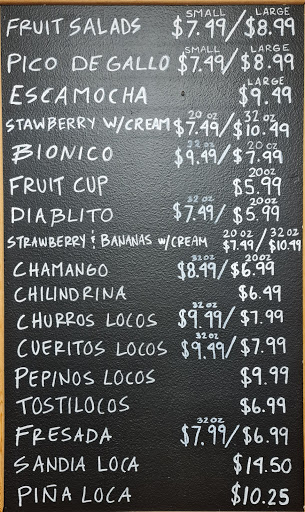 SMALL LARGE
FRUIT SALADS $7.49/$8.99
SMALL LARGE
PICO DE GALLO $7.49/$8.99
LARGE
ESCAMOCHA $9.49
20 OZ 32 OZ
STAWBERRY W/CREAM $7.49/$10.49
32 OZ 20 OZ
BIONICO $9.49/$7.99
20 OZ
FRUIT CUP $5.99
32 OZ 20 OZ
DIABLITO $7.49/$5.99
20 OZ 32 OZ
STRAWBERRY & BANANAS W/CREAM $7.49/$10.49
32 OZ 20 OZ
CHAMANGO $8.49/$6.99
CHILINDRINA $6.49
32 OZ
CHURROS LOCOS $9.99/$7.99
32 OZ
CUERITOS LOCOS $9.49/$7.99
PEPINOS LOCOS $9.99
TOSTILOCOS $6.99
32 OZ
FRESADA $7.99/$6.99
SANDIA LOCA $14.50
PIÑA LOCA $10.25